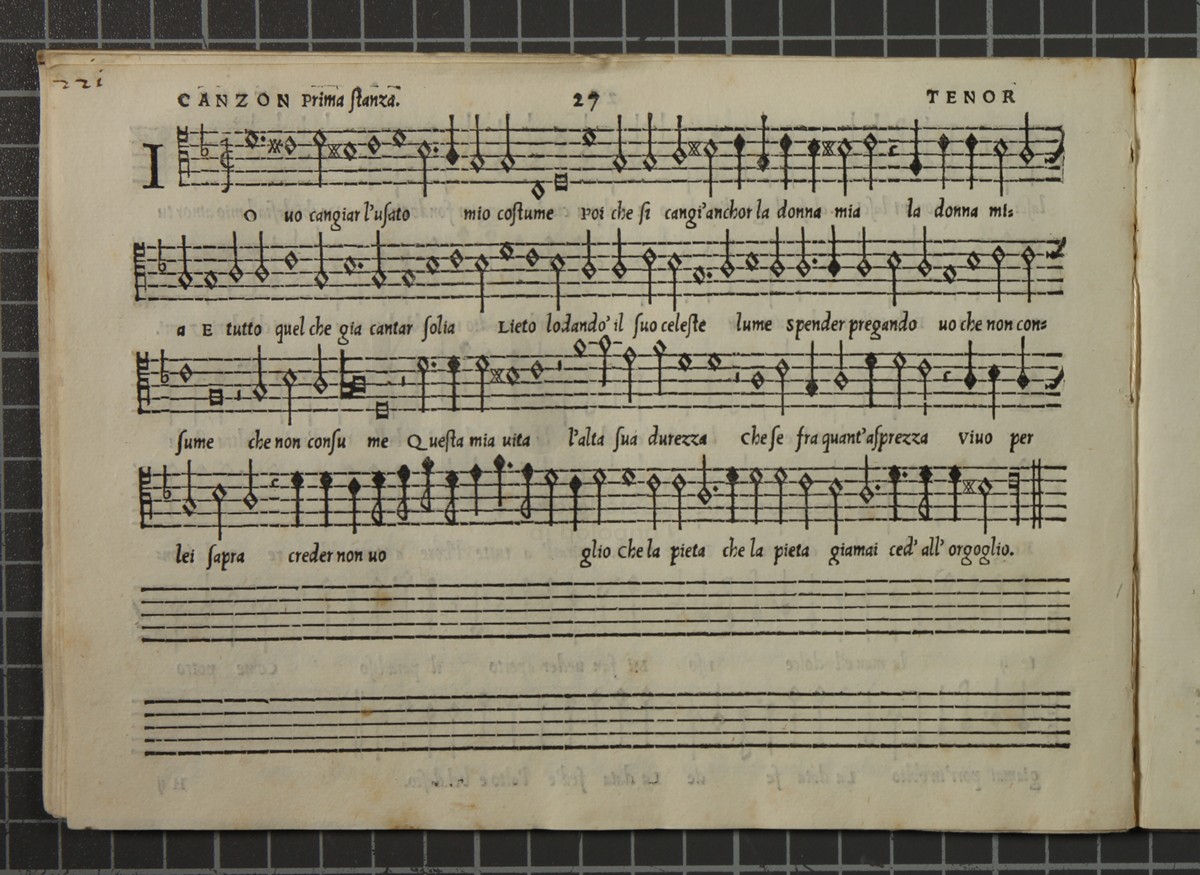 221
CANZON Prima ſtanza. 27 TENOR
I O uo cangiar l'uſato mio coſtume Poi che ſi cangi'anchor la donna mia la donna mi:
a E tutto quel che gia cantar ſolia Lieto lodando' il ſuo celeſte lume Spender pregando uo che non con:
ſume che non conſu me Queſta mia uita l'alta ſua durezza Che ſe fra quant'aſprezza Viuo per
lei ſapra creder non uo glio Che la pieta che la pieta giamai ced' all' orgoglio.